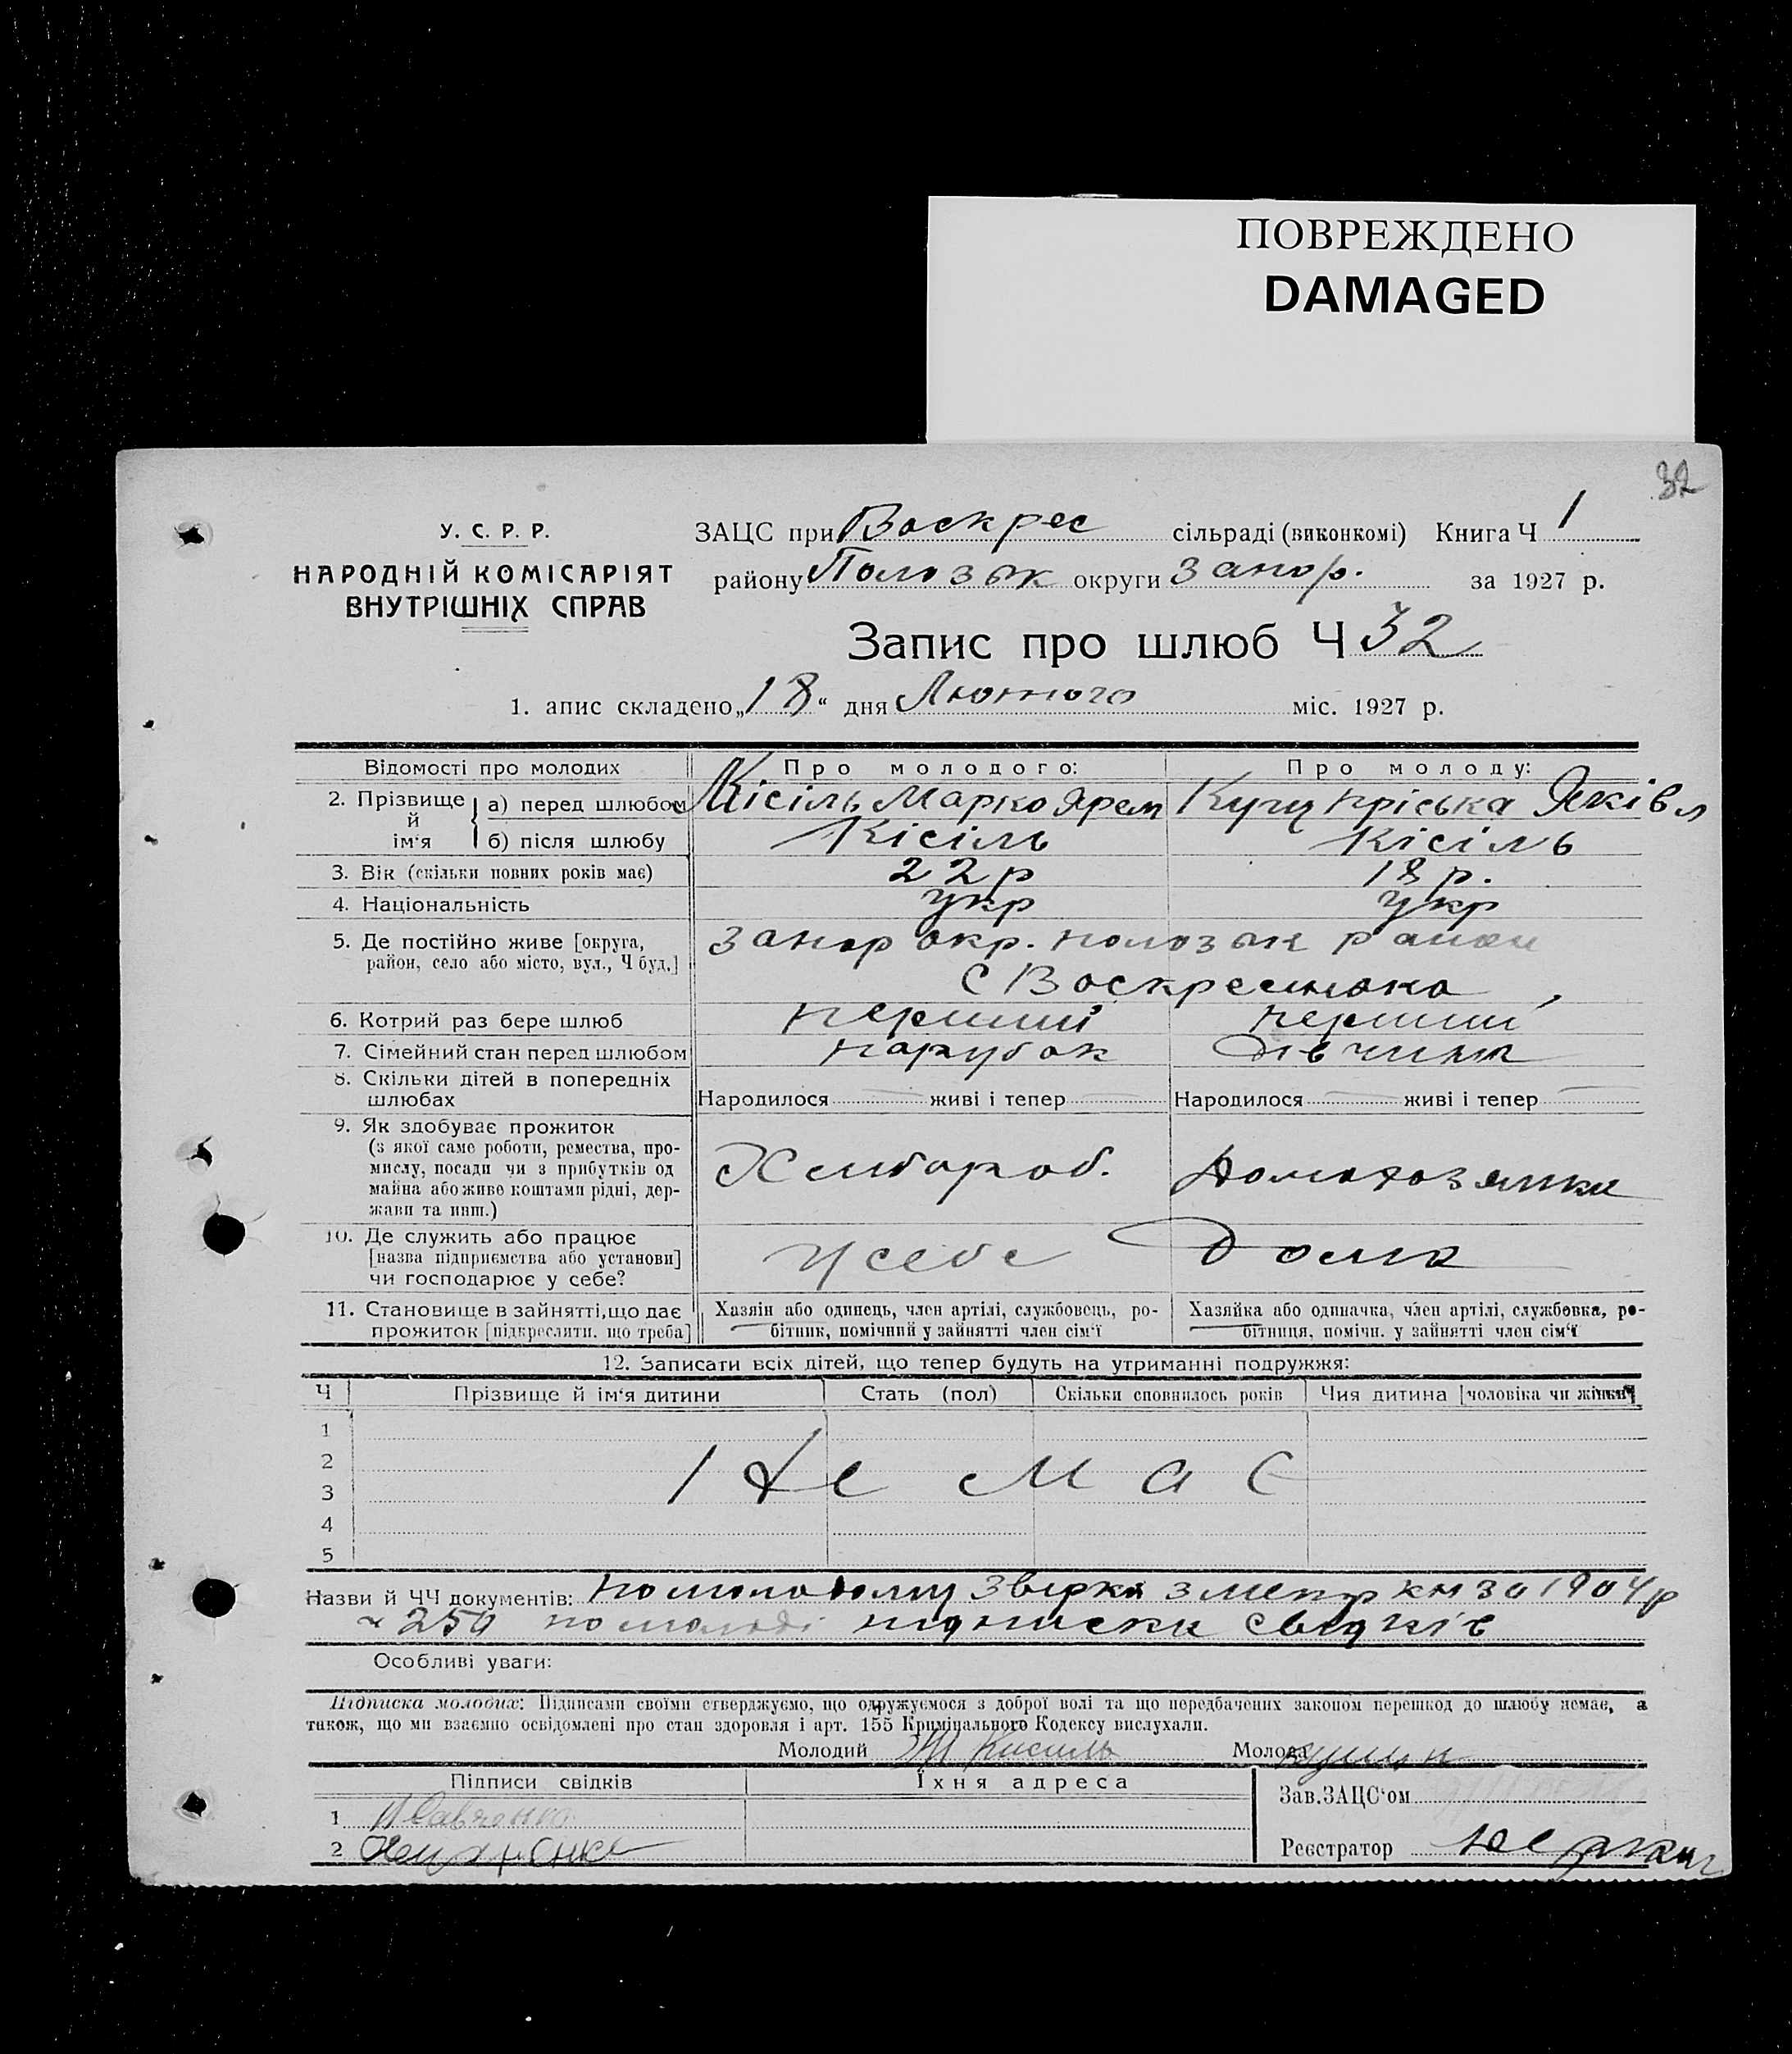 ПОВРЕЖДЕНО
DAMAGED
32
У. С. Р. Р.
НАРОДНІЙ КОМІСАРІЯТ
ВНУТРІШНІХ СПРАВ
ЗАЦС при Воскрес сільраді (виконкомі) Книга Ч 1
району Полозьк округи Запор. за 1927 р.
Запис про шлюб Ч 32
1. апис складено „18“ дня Лютого міс. 1927 р.
Відомості про молодих Про молодого: Про молоду:
2. Прізвище й ім'я а) перед шлюбом Кісіль Марко Ярем Пріська Яківл
б) після шлюбу Кісіль Кісіль
3. Вік (скільки повних років має) 22 р 18 р.
4. Національність укр укр
5. Де постійно живе [округа, район, село або місто, вул., Ч буд.] Запор окр. Полозьк район
С Воскресенка
6. Котрий раз бере шлюб перший перший
7. Сімейний стан перед шлюбом парубок дівчина
8. Скільки дітей в попередніх шлюбах Народилося — живі і тепер — Народилося — живі і тепер —
9. Як здобуває прожиток
(з якої саме роботи, ремества, про-
мислу, посади чи з прибутків од
майна або живе коштами рідні, дер-
жави та инш.) Хлибороб. Домохозяйка
10. Де служить або працює
[назва підприємства або установи]
чи господарює у себе? у себе Дома
11. Становище в зайнятті, що дає
прожиток [підкреслити, що треба]
Хазяін або одинець, член артілі, службовець, ро-
бітник, помічний у зайнятті член сім'ї
Хазяйка або одиначка, член артілі, службовка, ро-
бітниця, помічн. у зайнятті член сім'ї
12. Записати всіх дітей, що тепер будуть на утриманні подружжя:
Ч Прізвище й ім'я дитини Стать (пол) Скільки сповнилось років Чия дитина [чоловіка чи жінки]
1
2
3
4
5
Не має
Назви й ЧЧ документів: по молодому звірка з метр кн за 1904 р
250 по молоді підписки свідків
Особливі уваги:
Підписка молодих: Підписами своїми стверджуємо, що одружуємося з доброї волі та що передбачених законом перешкод до шлюбу немає, а
також, що ми взаємно освідомлені про стан здоровля і арт. 155 Кримінального Кодексу вислухали.
Молодий М Кисиль Молода
Підписи свідків Їхня адреса
Зав. ЗАЦС'ом
1 Савченко
2
Реєстратор